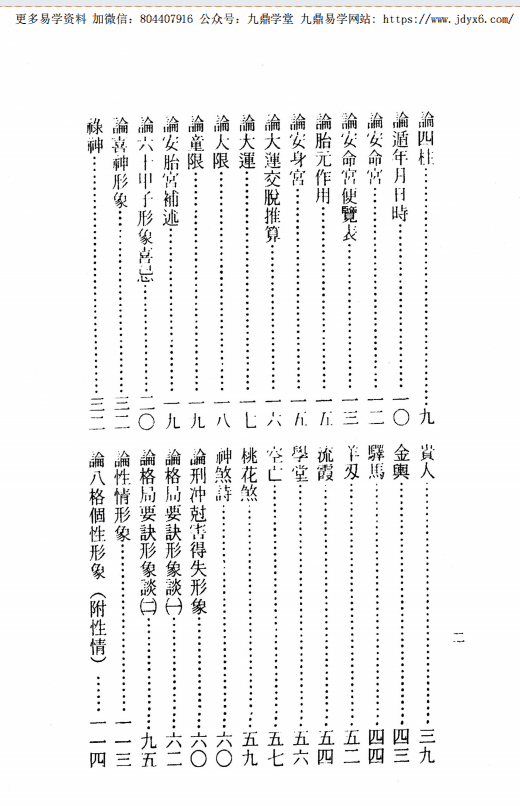 更多易学资料 加微信：804407916 公众号：九鼎学堂 九鼎易学网站：https://www.jdyx6.com/
論四柱⋯⋯九
論遁年月日時⋯⋯一〇
論安命宮⋯⋯一二
論安命宮便覽表⋯⋯一三
論胎元作用⋯⋯一五
論安身宮⋯⋯一五
論大運交脫推算⋯⋯一六
論大運⋯⋯一七
論大限⋯⋯一八
論童限⋯⋯一九
論安胎宮補述⋯⋯一九
論六十甲子形象喜忌⋯⋯二〇
論喜神形象⋯⋯三二
祿神⋯⋯三二
貴人⋯⋯三九
金輿⋯⋯四三
驛馬⋯⋯四四
羊刃⋯⋯五二
流霞⋯⋯五四
學堂⋯⋯五六
空亡⋯⋯五七
桃花煞⋯⋯五九
神煞詩⋯⋯六〇
論刑冲尅害得失形象⋯⋯六〇
論格局要訣形象談㈠⋯⋯六二
論格局要訣形象談㈡⋯⋯九五
論性情形象⋯⋯一一三
論八格個性形象（附性情）⋯⋯一一四
二